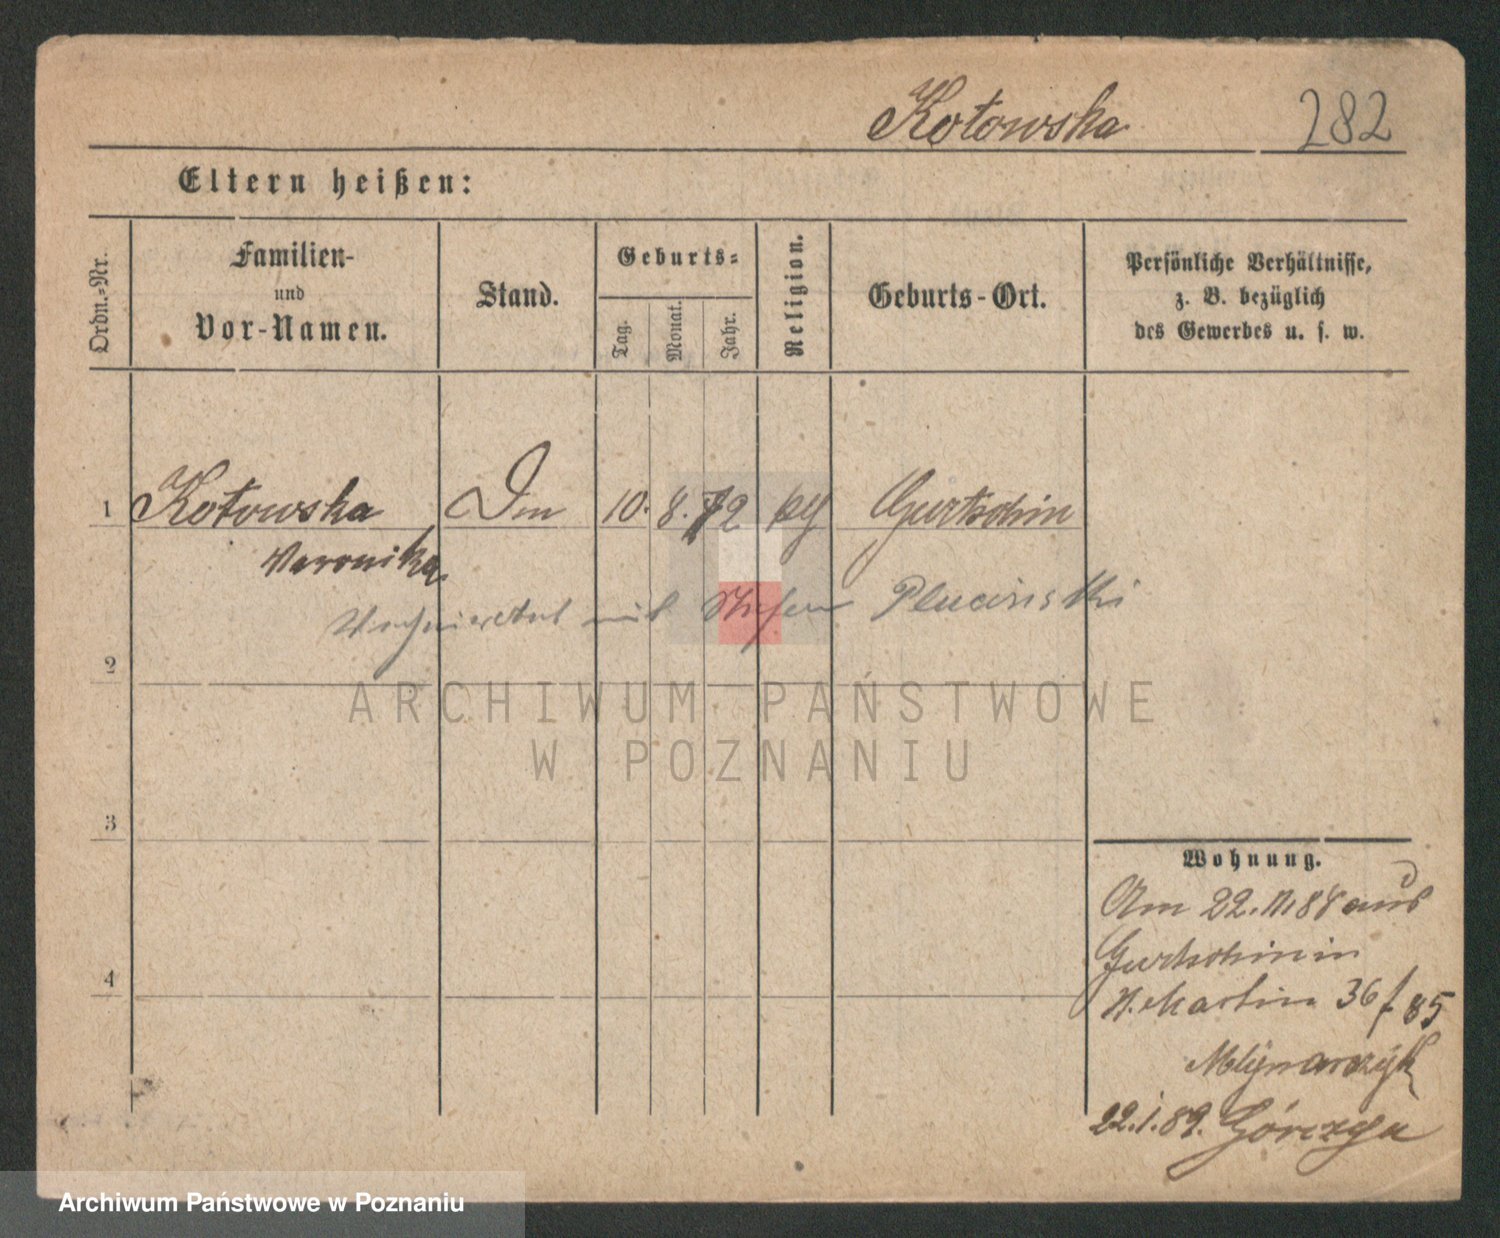 Kotowska 282
Eltern heißen:
Ordn.-Nr.
Familien-
und
Vor-Namen.
Stand.
Geburts-
Tag.
Monat.
Jahr.
Religion.
Geburts-Ort.
Persönliche Verhältnisse,
z. B. bezüglich
des Gewerbes u. s. w.
1 Kotowska 10. 8. 72 Gurtschin
Veronika
mit Stefan Plucinski
2
ARCHIWUM PAŃSTWOWE
W POZNANIU
3
4
Wohnung.
Am 22. 11 88 aus
Gurtschin in
St. Martin 36 f 85
Mlynarczyk
22.1.89. Górczyn
Archiwum Państwowe w Poznaniu